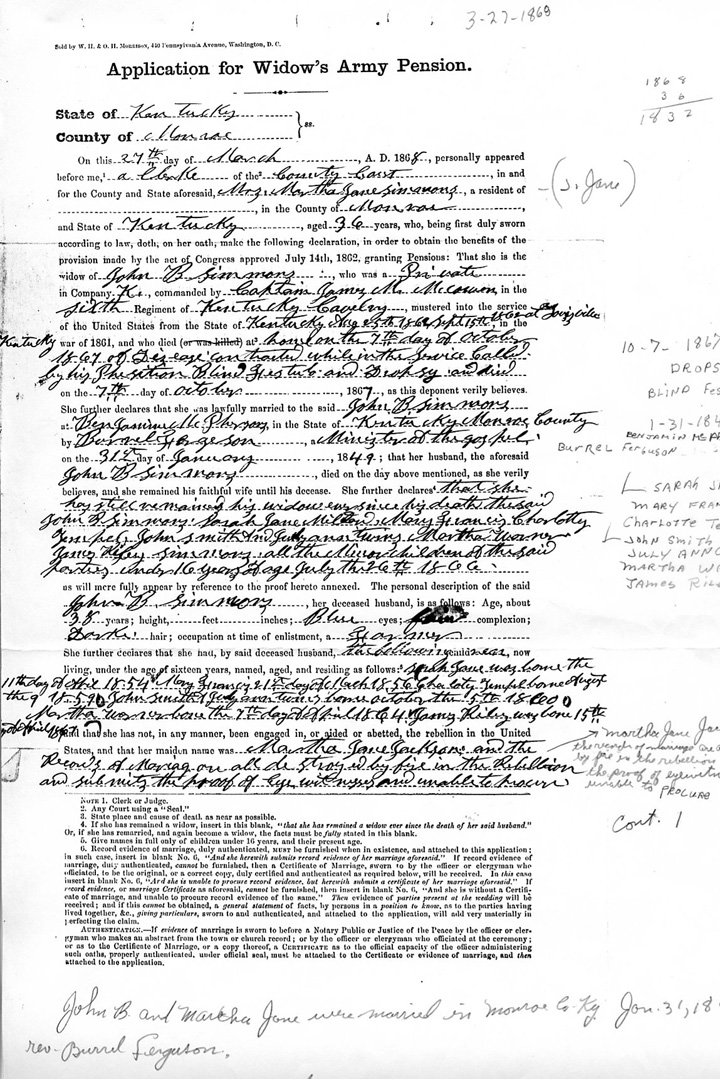 3-27-1869
Sold by W. H. & O. H. Morrison, 440 Pennsylvania Avenue, Washington, D. C.
Application for Widow's Army Pension.
1868
36
1832
State of Kentucky
County of Monroe } ss.
On this 27th day of March, A. D. 1868, personally appeared
before me,¹ a Clerk of the² County Cort, in and
for the County and State aforesaid, Mrs. Martha Jane Simmons, a resident of
, in the County of Monroe,
(S. Jane)
and State of Kentucky, aged 36 years, who, being first duly sworn
according to law, doth, on her oath, make the following declaration, in order to obtain the benefits of the
provision made by the act of Congress approved July 14th, 1862, granting Pensions: That she is the
widow of John B Simmons, who was a Private
in Company K, commanded by Captain James M. in the
Sixth Regiment of Kentucky Cavelry, mustered into the service
of the United States from the State of Kentucky, in the
war of 1861, and who died (or was killed) at³ home on the 7th day of October
1867 of contracted while in the Service Called
by his Blind and and died
on the 7th day of October, 1867, as this deponent verily believes.
She further declares that she was lawfully married to the said John B Simmons
at Benjamine, in the State of Kentucky Monroe County
by, a Minister of the gospel
on the 31st day of January, 1849; that her husband, the aforesaid
John B Simmons, died on the day above mentioned, as she verily
believes, and she remained his faithful wife until his decease. She further declares⁴ that she
has still remained his widow ever since his death the said
John B Simmons Sarah Jane Mary Francis Charlotty
John Smith and July ann Martha
James Simmons all the Minor children of the said
under 16 years of age July the 6th 1866
as will more fully appear by reference to the proof hereto annexed. The personal description of the said
John B Simmons, her deceased husband, is as follows: Age, about
38 years; height, feet inches; Blue eyes; complexion;
Dark hair; occupation at time of enlistment, a Farmer
She further declares that she had, by said deceased husband, the following, now
living, under the age of sixteen years, named, aged, and residing as follows:⁵ Sarah Jane was borne the
11th day of 1854 Mary Francis day of March 1856 Charloty borne August
the 9 John Smith & July ann borne October the 5th 1860
Martha borne the 7th day of 1864 James was borne 15th
that she has not, in any manner, been engaged in, or aided or abetted, the rebellion in the United
States, and that her maiden name was Martha Jane Jackson and the
on all destroyed by fire in the Rebellion
and submits the proof of Eye witnesses and unable to
10-7-1867
DROPS
BLIND Fes
1-31-184
BENJAMIN McPH
BURREL Ferguson
SARAH J
MARY FRAN
Charlotte Te
JOHN SMITH
JULY ANNE
MARTHA W
JAMES Ri
Martha Jane Ja
by fire in the rebellion
the proof of eyewitn
unable to PROCURE
Cont. 1
Note 1. Clerk or Judge.
2. Any Court using a "Seal."
3. State place and cause of death as near as possible.
4. If she has remained a widow, insert in this blank, "that she has remained a widow ever since the death of her said husband."
Or, if she has remarried, and again become a widow, the facts must be fully stated in this blank.
5. Give names in full only of children under 16 years, and their present age.
6. Record evidence of marriage, duly authenticated, must be furnished when in existence, and attached to this application;
in such case, insert in blank No. 6, "And she herewith submits record evidence of her marriage aforesaid." If record evidence of
marriage, duly authenticated, cannot be furnished, then a Certificate of Marriage, sworn to by the officer or clergyman who
officiated, to be the original, or a correct copy, duly certified and authenticated as required below, will be received. In this case
insert in blank No. 6, "And she is unable to procure record evidence, but herewith submits a certificate of her marriage aforesaid." If
record evidence, or marriage Certificate as aforesaid, cannot be furnished, then insert in blank No. 6, "And she is without a Certifi-
cate of marriage, and unable to procure record evidence of the same." Then evidence of parties present at the wedding will be
received; and if this cannot be obtained, a general statement of facts, by persons in a position to know, as to the parties having
lived together, &c., giving particulars, sworn to and authenticated, and attached to the application, will add very materially in
perfecting the claim.
Authentication.—If evidence of marriage is sworn to before a Notary Public or Justice of the Peace by the officer or cler-
gyman who makes an abstract from the town or church record; or by the officer or clergyman who officiated at the ceremony;
or as to the Certificate of Marriage, or a copy thereof, a Certificate as to the official capacity of the officer administering
such oaths, properly authenticated, under official seal, must be attached to the Certificate or evidence of marriage, and then
attached to the application.
John B. and Martha Jane were married in Monroe Co. Ky Jan. 31, 18
rev. Burrel Ferguson.